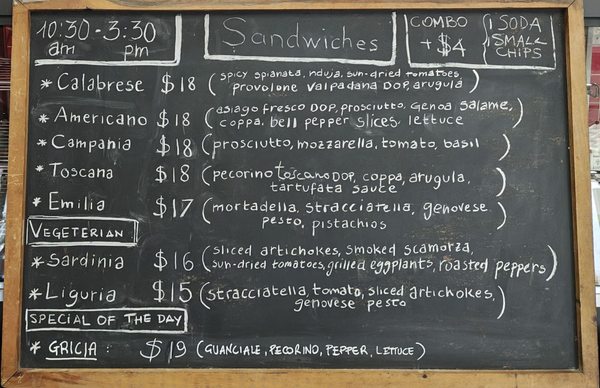 10:30 - 3:30
am pm
Sandwiches
COMBO
+ $4
1 SODA
1 SMALL
CHIPS
* Calabrese $18 (spicy spianata, nduja, sun-dried tomatoes,
provolone valpadana DOP, arugula)
* Americano $18 (asiago fresco DOP, prosciutto, genoa salame,
coppa, bell pepper slices, lettuce)
* Campania $18 (prosciutto, mozzarella, tomato, basil)
* Toscana $18 (pecorino toscano DOP, coppa, arugula,
tartufata sauce)
* Emilia $17 (mortadella, stracciatella, genovese
pesto, pistachios)
VEGETERIAN
* Sardinia $16 (sliced artichokes, smoked scamorza,
sun-dried tomatoes, grilled eggplants, roasted peppers)
* Liguria $15 (stracciatella, tomato, sliced artichokes,
genovese pesto)
SPECIAL OF THE DAY
* GRICIA : $19 (GUANCIALE, PECORINO, PEPPER, LETTUCE)